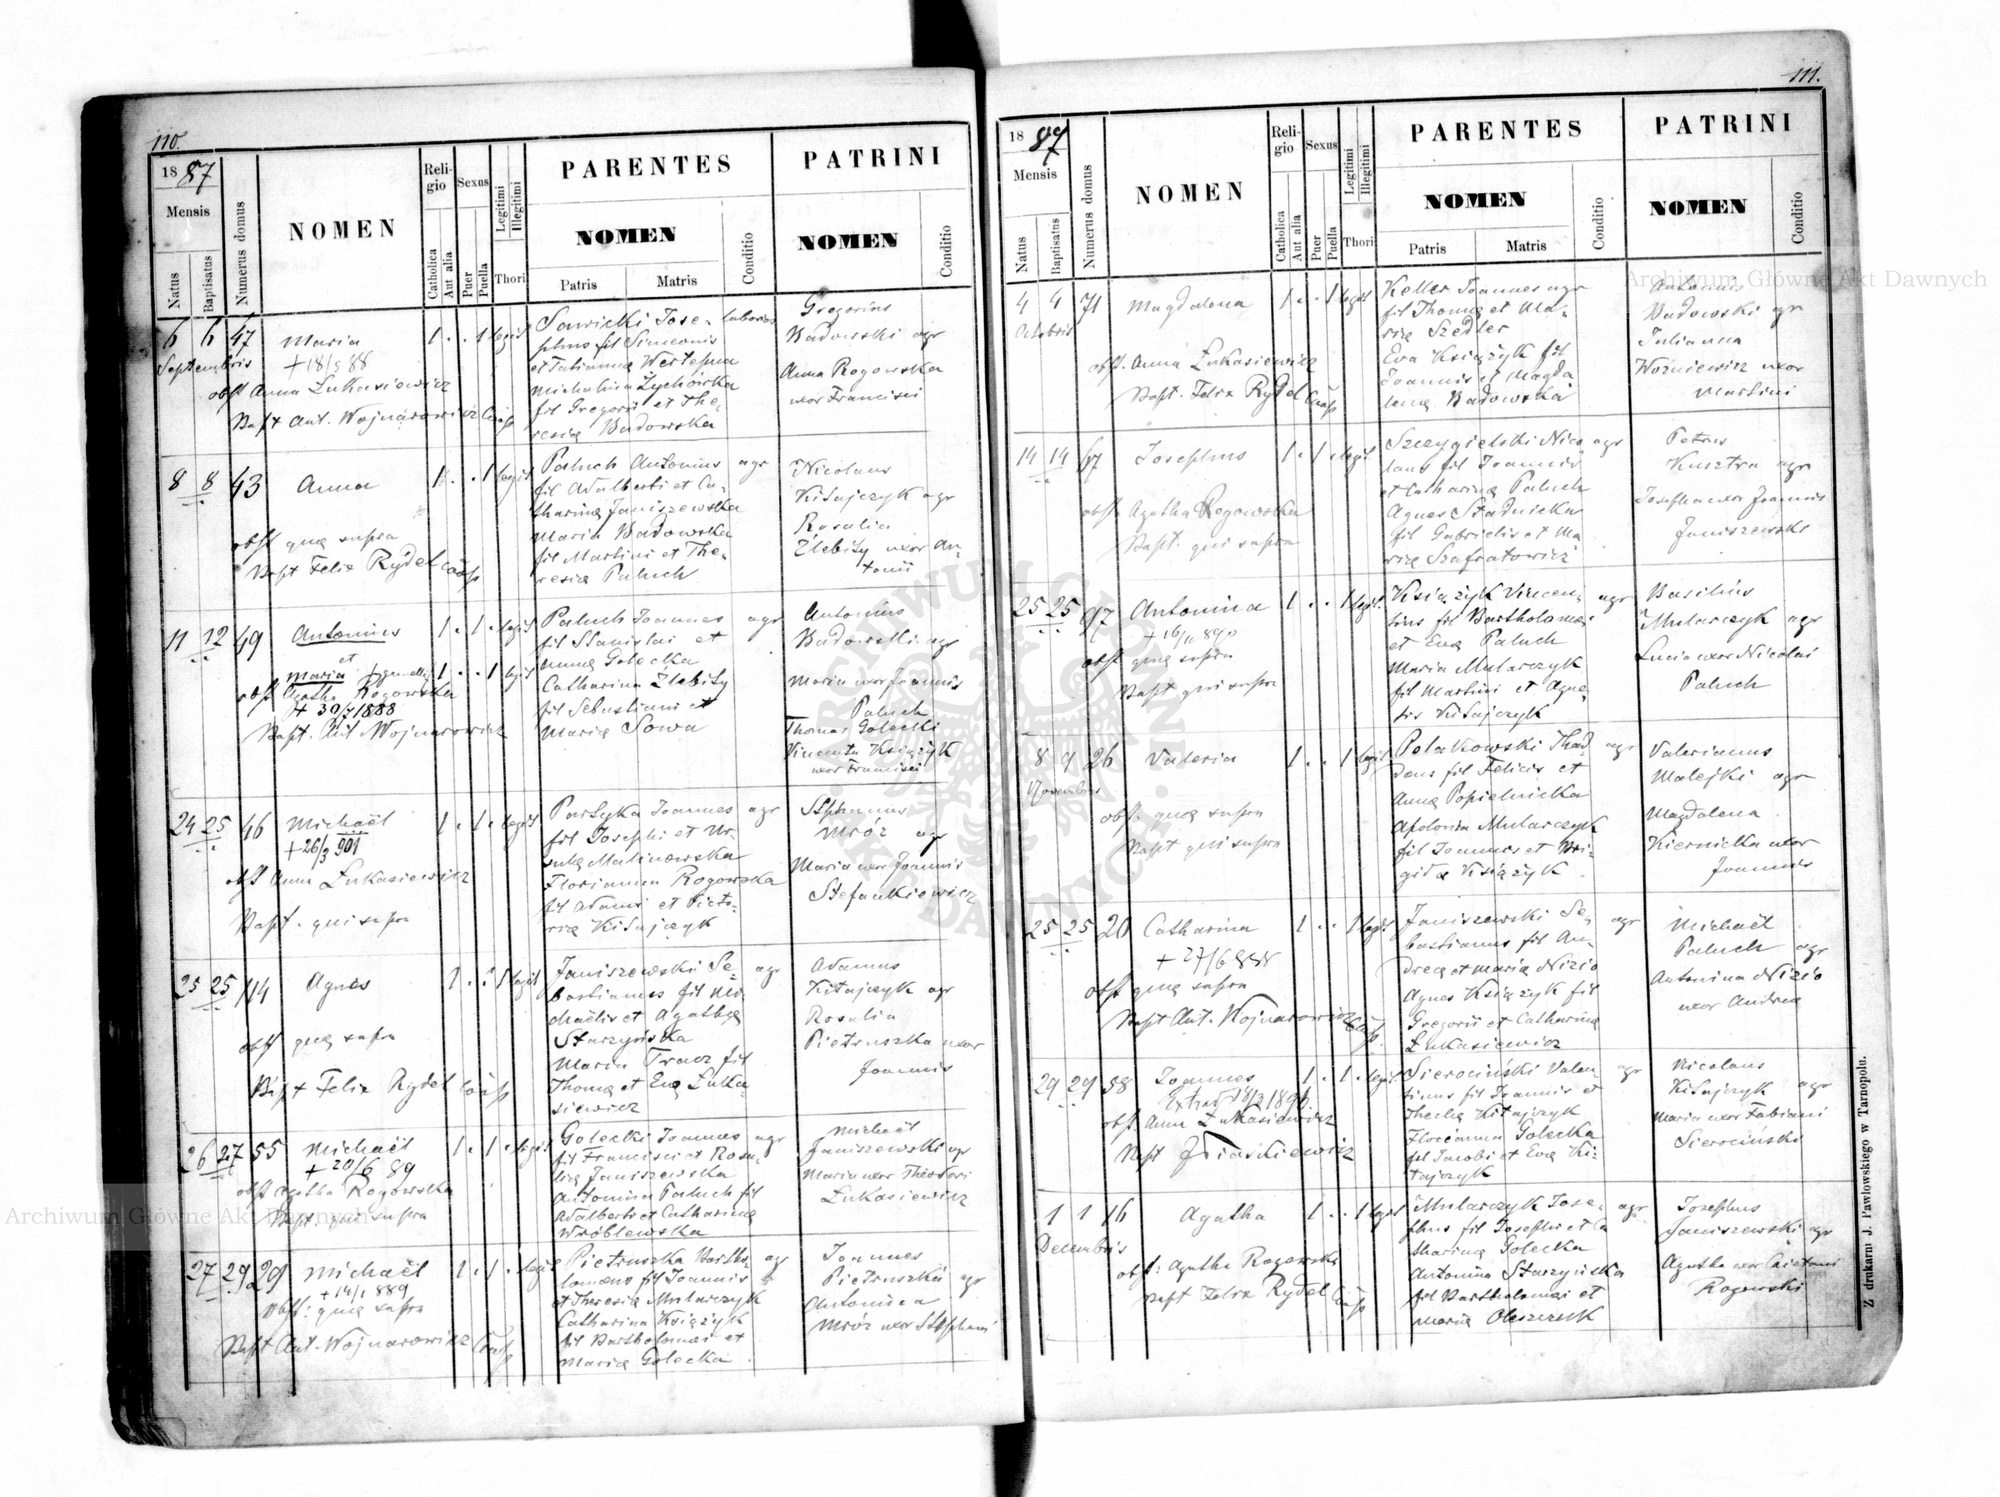 110.
18 87
Mensis
Natus
Baptisatus
Numerus domus
NOMEN
Religio
Catholica
Aut alia
Sexus
Puer
Puella
Legitimi
Illegitimi
Thori
PARENTES
NOMEN
Patris
Matris
Conditio
PATRINI
NOMEN
Conditio
6 6 47 Maria 1 . . 1 legit
Septembris
+ 18/5 88
obst Anna Łukasiewicz
Bapt Ant. Wojnarowicz Coop
Sawicki Jose- laborios
phus fil Simeonis
et Tatianna Wertepna
Michalina Żychówka
fil Gregorii et The-
resia Badowska
Gregorius
Badowski agr
Anna Rogowska
uxor Francisci
8 8 43 Anna 1 . . 1 legit
obst quae supra
Bapt Felix Rydel Coop
Paluch Antonius agr
fil Adalberti et Ca-
tharina Janiszewska
Maria Badowska
fil Martini et The-
resia Paluch
Nicolaus
Kitajczyk agr
Rosalia
Zlebity uxor An-
tonii
11 12 49 Antonius 1 . 1 . legit
et
Maria gemelli 1 . . 1 legit
obst Agatha Rogowska
+ 30/7 1888
Bapt. Ant Wojnarowicz
Paluch Joannes agr
fil Stanislai et
Anna Golecka
Catharina Zlebity
fil Sebastiani et
Maria Sowa
Antonius
Badowski agr
Maria uxor Joannis
Paluch
Thomas Golecki
Vincenta Książyk
uxor Francisci
24 25 46 Michaël 1 . 1 . legit
+ 26/3 901
obst Anna Łukasiewicz
Bapt. qui supra
Partyka Joannes agr
fil Josephi et Ur-
sula Malinowska
Florianna Rogowska
fil Adami et Victo-
ria Kitajczyk
Stephanus
Mróz agr
Maria uxor Joannis
Stefankiewicz
25 25 114 Agnes 1 . . 1 legit
obst quae supra
Bapt Felix Rydel Coop
Janiszewski Se- agr
bastianus fil Mi-
chaelis et Agatha
Starzyńska
Maria Tracz fil
Thoma et Eva Łuka-
siewicz
Adamus
Kitajczyk agr
Rosalia
Pietruszka uxor
Joannis
26 27 55 Michaël 1 . 1 . legit
+ 20/6 89
obst Agatha Rogowska
Bapt. qui supra
Golecki Joannes agr
fil Francisci et Rosa-
lia Janiszewska
Antonina Paluch fil
Adalberti et Catharina
Wróblewska
Michaël
Janiszewski agr
Maria uxor Theodori
Łukasiewicz
27 29 29 Michaël 1 . 1 . legit
+ 14/1 889
obst: quae supra
Bapt Ant. Wojnarowicz Coop
Pietruszka Bartho- agr
lomeus fil Joannis
et Theresia Mularczyk
Catharina Książyk
fil Bartholomei et
Maria Golecka
Joannes
Pietruszka agr
Antonina
Mróz uxor Stephani
111.
18 87
Mensis
Natus
Baptisatus
Numerus domus
NOMEN
Religio
Catholica
Aut alia
Sexus
Puer
Puella
Legitimi
Illegitimi
Thori
PARENTES
NOMEN
Patris
Matris
Conditio
PATRINI
NOMEN
Conditio
4 4 71 Magdalena 1 . . 1 legit
Octobris
obst. Anna Łukasiewicz
Bapt. Felix Rydel Coop
Keller Joannes agr
fil Thoma et Ma-
ria Szedler
Eva Książyk fil
Joannis et Magda
lena Badowska
Antonius
Badowski agr
Julianna
Woźniewicz uxor
Martini
14 14 67 Josephus 1 . 1 . legit
obst Agatha Rogowska
Bapt. qui supra
Szczygielski Nico agr
laus fil Joannis
et Catharina Paluch
Agnes Stadnicka
fil Gabrielis et Ma
ria Szafratowicz
Petrus
Kusztra agr
Josepha uxor Joannis
Janiszewski
25 25 97 Antonina 1 . . 1 legit.
+ 16/11 890
obst quae supra
Bapt qui supra
Książyk Vincen- agr
tius fil Bartholomei
et Eva Paluch
Maria Mularczyk
fil Martini et Agne-
tis Kitajczyk
Basilius
Mularczyk agr
Lucia uxor Nicolai
Paluch
8 9 26 Valeria 1 . . 1 legit
Novembris
obst. quae supra
Bapt qui supra
Polakowski Thad- agr
deus fil Felicis et
Anna Popielnicka
Apolonia Mularczyk
fil Joannis et Bri-
gida Książyk
Valerianus
Malejki agr
Magdalena
Kiernicka uxor
Joannis
25 25 20 Catharina 1 . . 1 legit
+ 27/6 888
obst quae supra
Bapt Ant. Wojnarowicz Coop
Janiszewski Se- agr
bastianus fil An-
drea et Maria Nizio
Agnes Książyk fil
Gregorii et Catharina
Łukasiewicz
Michaël
Paluch agr
Antonina Nizio
uxor Andrea
29 29 58 Joannes 1 . 1 . legit
obst. Anna Łukasiewicz
Bapt
Sierociński Valen- agr
tinus fil Joannis et
Thecla Kitajczyk
Florianna Golecka
fil Jacobi et Eva Ki-
tajczyk
Nicolaus
Kitajczyk agr
Maria uxor Fabiani
Sierociński
1 1 16 Agatha 1 . . 1 legit
Decembris
obst: Agatha Rogowska
Bapt Felix Rydel Coop
Mularczyk Jose- agr
phus fil Josephi et Ca
tharina Golecka
Antonina Starzyńska
fil Bartholomei et
Maria Oleszczuk
Josephus
Janiszewski agr
Agatha uxor Caietani
Rogowski
Z drukarni J. Pawłowskiego w Tarnopolu.
Archiwum Główne Akt Dawnych
Archiwum Główne Akt Dawnych
ARCHIWUM GŁÓWNE AKT DAWNYCH